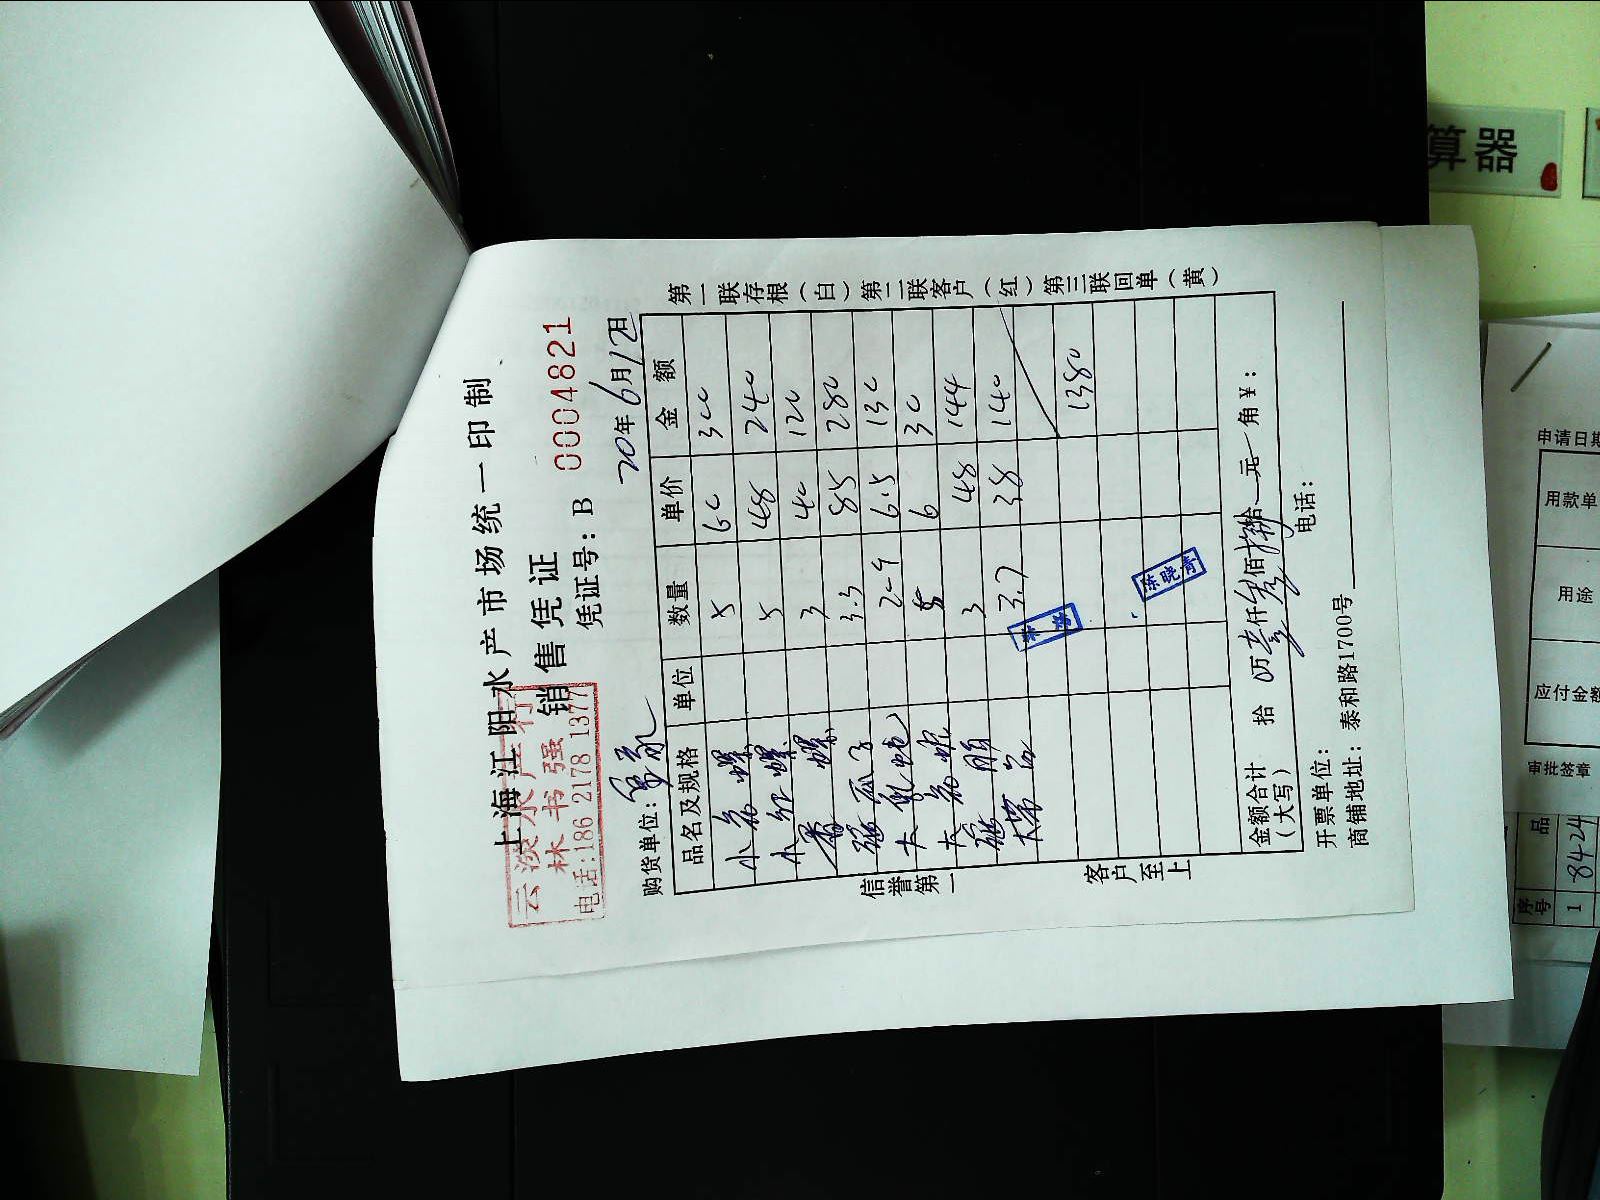 上海江阳水产市场统一印制
销售凭证
云淡水产行
林书强
电话:186 2178 1377
凭证号: B 0004821
购货单位:
20年6月12日
品名及规格 单位 数量 单价 金额
小 螺 5 60 300
小红螺 5 48 240
香螺 3 40 120
瓜子 3.3 85 280
大 6.5 130
大 5 6 30
3 48 144
大带子 3.7 38 140
1380
陈晓青
金额合计(大写) 拾 万壹仟叁佰捌拾 元 角¥:
开票单位: 电话:
商铺地址: 泰和路1700号
信誉第一
客户至上
第一联存根(白)第二联客户(红)第三联回单(黄)
算器
申请日期
用款单
用途
应付金额
审批签章
序号 品
1 8424